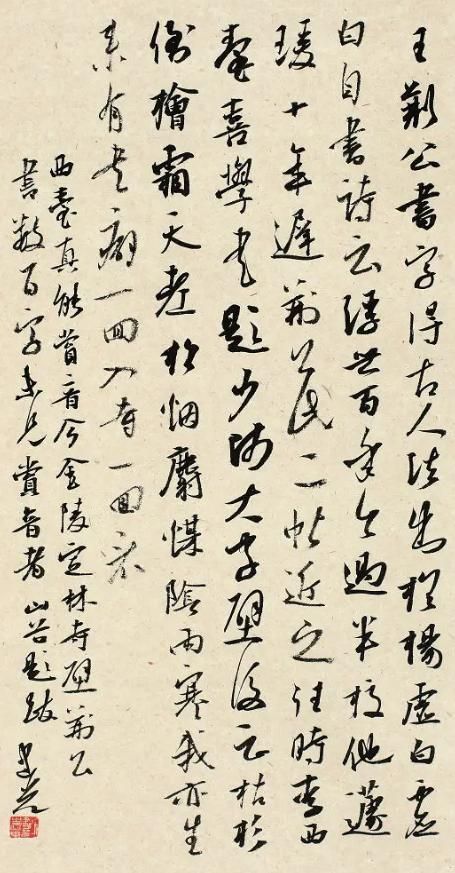 王荆公書字得古人法出於楊虛白虛
白自書詩云浮世百年今過半校他蘧
瑗十年遲荆公此二帖近之往時李西
臺喜學书題少師大字壁後云枯杉
倒檜霜天老松烟麝煤陰雨寒我亦生
来有书癖一回入寺一回看
西臺真能賞音今金陵定林寺壁荆公
書數百字未見賞音者 山谷題跋